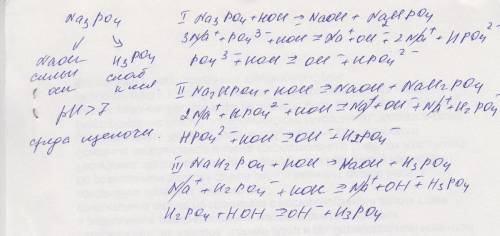 Na₃PO₄
↙ ↘
NaOH H₃PO₄
сильн слаб
осн к-та
pH>7
среда щелочн.
I Na₃PO₄+HOH ⇄ NaOH + Na₂HPO₄
3Na⁺+PO₄³⁻+HOH ⇄ Na⁺+OH⁻+2Na⁺+HPO₄²⁻
PO₄³⁻+HOH ⇄ OH⁻+HPO₄²⁻
II Na₂HPO₄+HOH ⇄ NaOH+NaH₂PO₄
2Na⁺+HPO₄²⁻+HOH ⇄ Na⁺+OH⁻+Na⁺+H₂PO₄⁻
HPO₄²⁻+HOH ⇄ OH⁻+H₂PO₄⁻
III NaH₂PO₄+HOH → NaOH+H₃PO₄
Na⁺+H₂PO₄⁻+HOH ⇄ Na⁺+OH⁻+H₃PO₄
H₂PO₄⁻+HOH ⇄ OH⁻+H₃PO₄